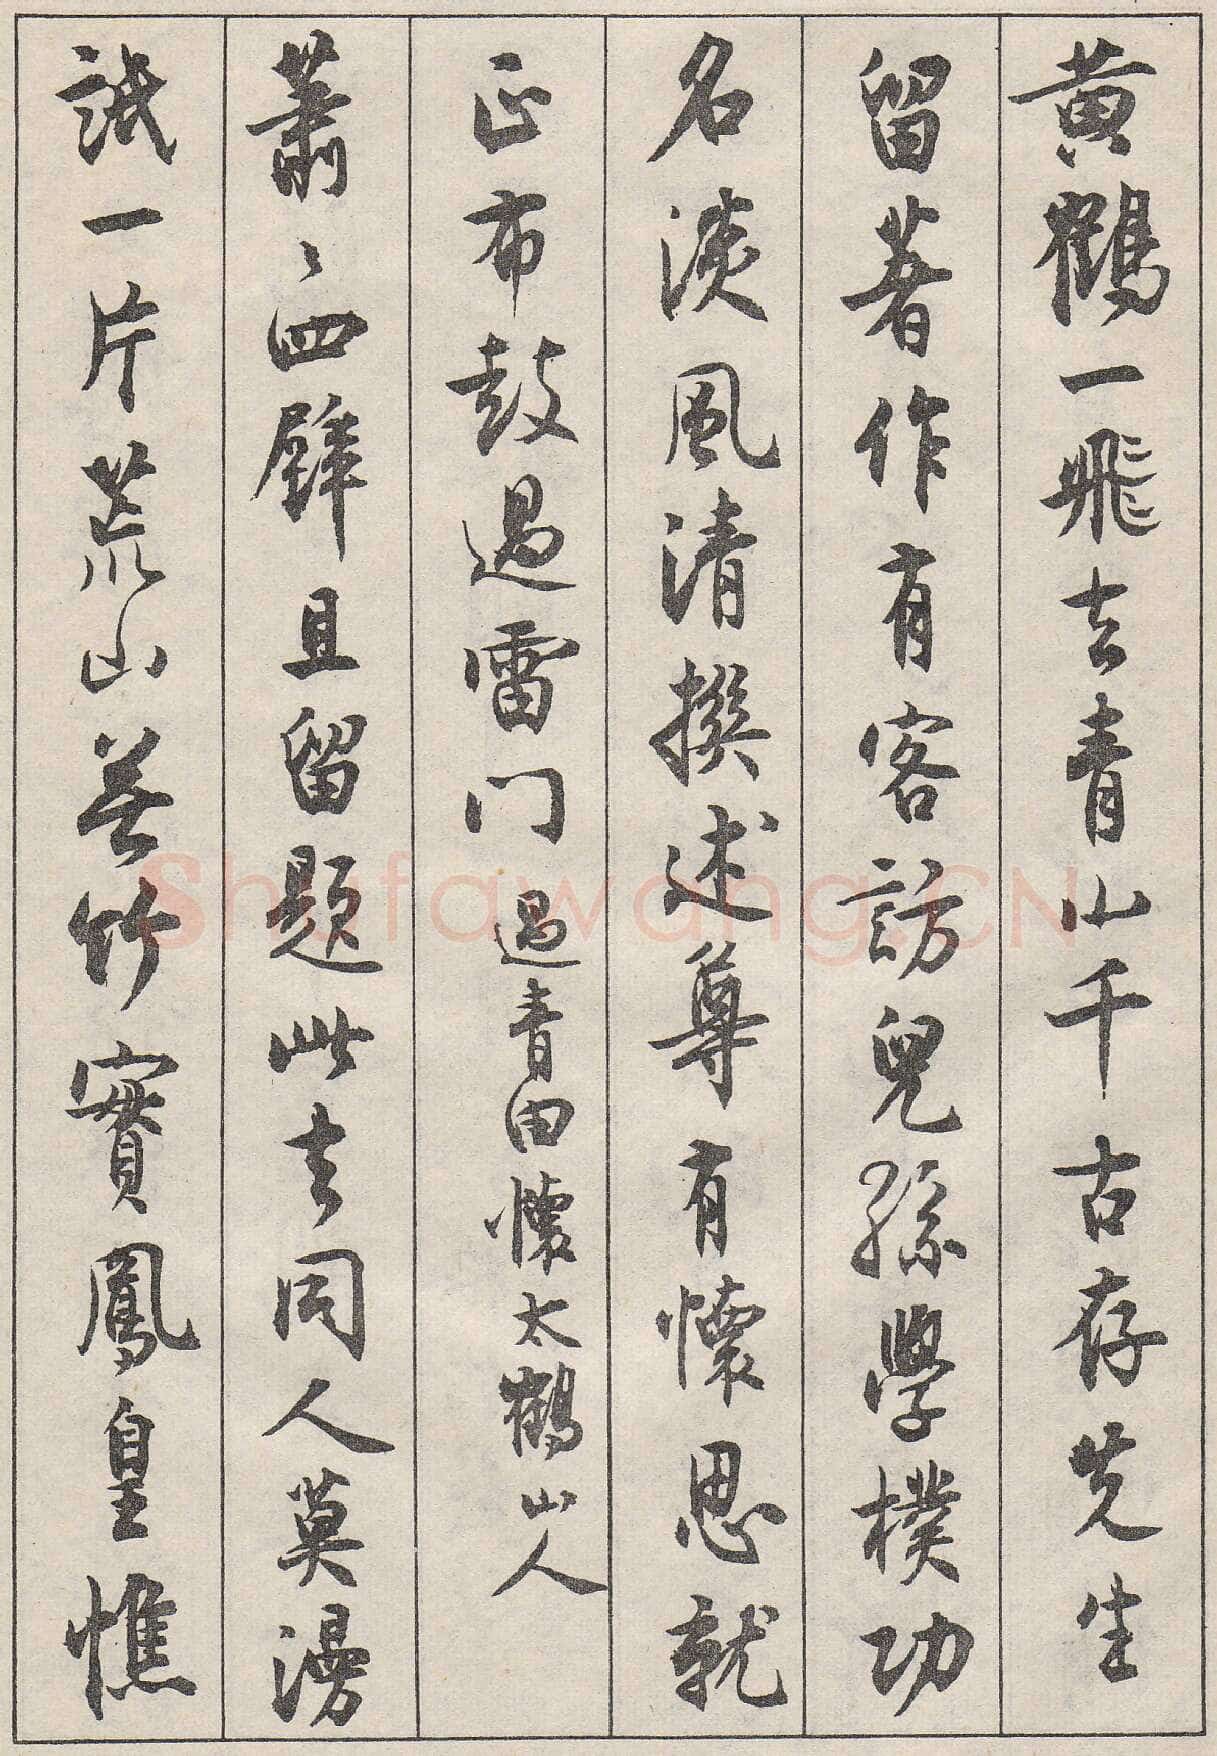 黄鶴一飛去青山千古存先生
留著作有客訪兒孫學樸功
名淡風清撰述尊有懷思就
正布鼓過雷門 過青田懷太鶴山人
蕭〻四壁且留題此去同人莫漫
詆一片荒山無竹實鳳皇憔
Shufawang.CN